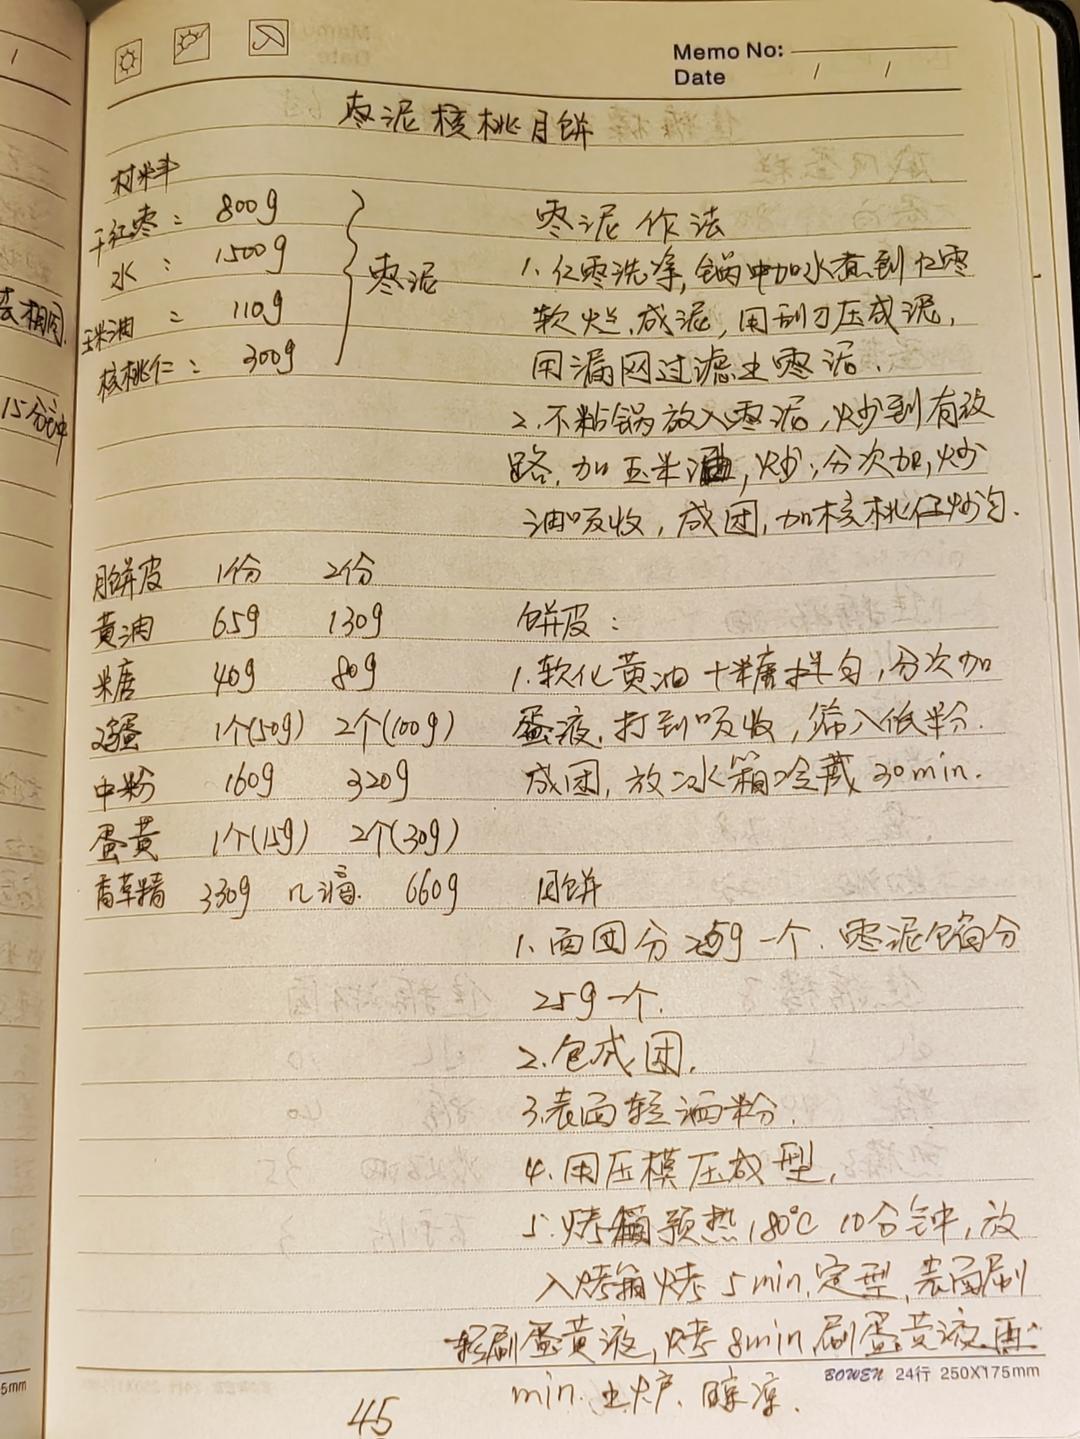 Memo No:
Date / /
枣泥核桃月饼
材料
干红枣: 800g
水: 1500g
玉米油: 110g
核桃仁: 300g
枣泥
枣泥作法
1. 红枣洗净,锅中加水煮到红枣
软烂.成泥,用刮刀压成泥,
用漏网过滤出枣泥.
2.不粘锅放入枣泥,炒到有纹
路,加玉米油,炒,分次加,炒
油吸收,成团,加核桃仁炒匀.
月饼皮 1份 2份
黄油 65g 130g
米唐 40g 80g
鸡蛋 1个(50g) 2个(100g)
中粉 160g 320g
蛋黄 1个(15g) 2个(30g)
香草精 330g 几滴. 660g
饼皮:
1.软化黄油+糖拌匀,分次加
蛋液.打到吸收,筛入低粉.
成团,放冰箱冷藏30min.
月饼
1.面团分25g一个.枣泥馅分
25g一个.
2.包成团.
3.表面轻洒粉.
4.用压模压成型.
5.烤箱预热180℃ 10分钟,放
入烤箱烤5min.定型,表面刷
刷蛋黄液,烤8min刷蛋黄液再
min.出炉、晾凉.
45
BOWEN 24行 250X175mm
去相同.
15分钟
5mm